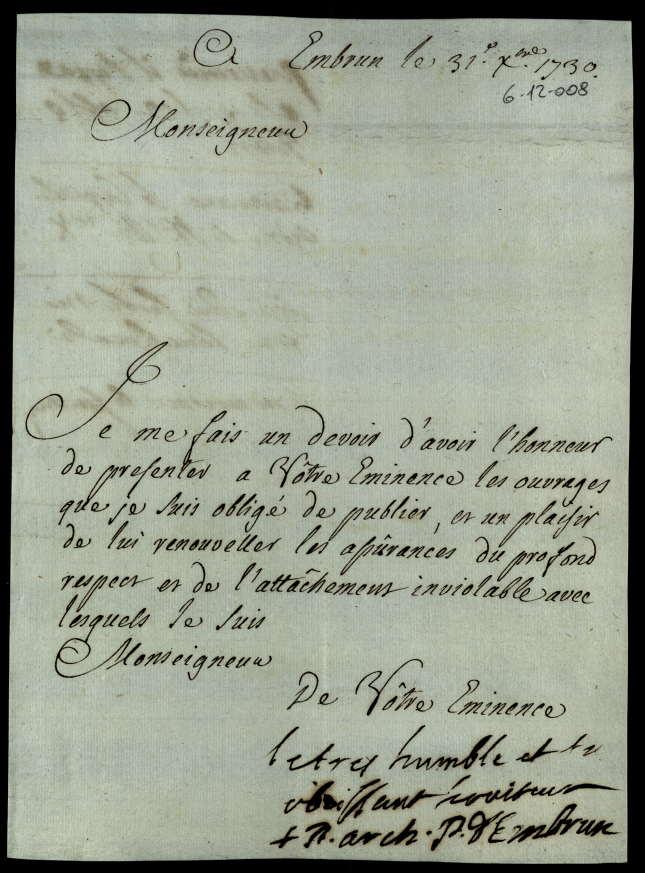 A Embrun le 31.e Xbre. 1730.
6-12-008
Monseigneur
Je me fais un devoir d'avoir l'honneur
de presenter a Vôtre Eminence les ouvrages
que je suis obligé de publier, et un plaisir
de lui renouveller les assûrances du profond
respect et de l'attâchement inviolable avec
lesquels Je suis
Monseigneur
De Vôtre Eminence
le tres humble et tr
obeissant serviteur
+ P. arch. P. d'Embrun